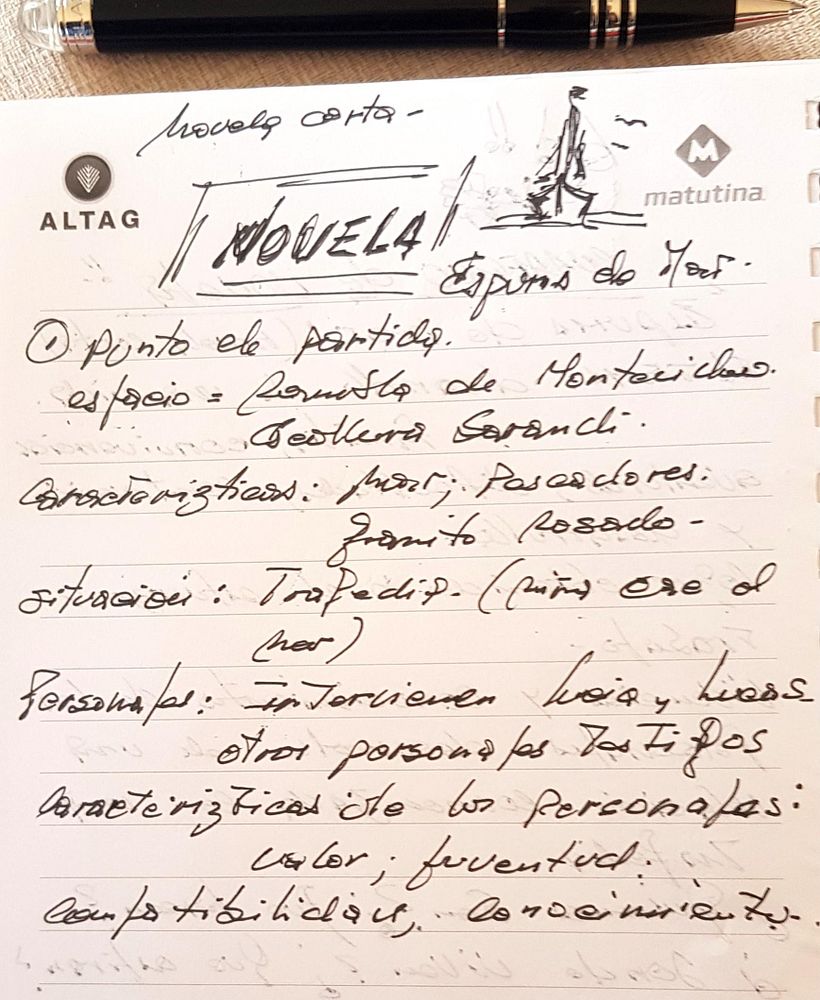 Novela corta -
ALTAG
matutina
NOVELA
Espuma de Mar.
① Punto de partida.
espacio = Rambla de Montevideo.
Escollera Sarandí.
Caracterizticas: mar; Pescadores.
granito Rosado -
situación: Trajedia. (niña cae al
mar)
Personajes: Intervienen Lucia y Lucas
otros personajes Testigos
Caracterizticas de los Personajes:
valor; juventud.
Compatibilidad, Conocimiento.